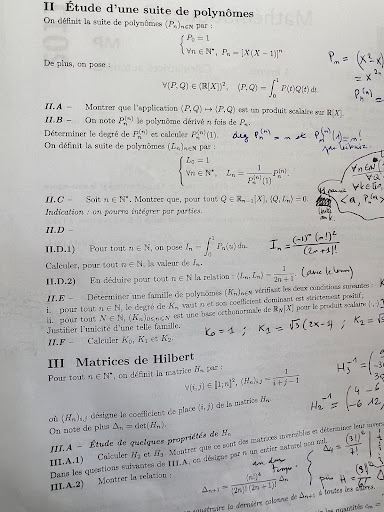 II Étude d'une suite de polynômes
On définit la suite de polynômes (Pₙ)ₙ∈ℕ par :
{ P₀ = 1
∀n ∈ ℕ*, Pₙ = [X(X − 1)]ⁿ
Pₙ = (X²−X)
= X²ⁿ
De plus, on pose :
∀(P, Q) ∈ (ℝ[X])², (P, Q) = ∫₀¹ P(t)Q(t) dt.
II.A – Montrer que l'application (P, Q) ↦ (P, Q) est un produit scalaire sur ℝ[X].
II.B – On note Pₙ⁽ⁿ⁾ le polynôme dérivé n fois de Pₙ.
Déterminer le degré de Pₙ⁽ⁿ⁾ et calculer Pₙ⁽ⁿ⁾(1). deg Pₙ⁽ⁿ⁾ = n et Pₙ⁽ⁿ⁾(1) = n!
On définit la suite de polynômes (Lₙ)ₙ∈ℕ par :
{ L₀ = 1
∀n ∈ ℕ*, Lₙ = 1/Pₙ⁽ⁿ⁾(1) Pₙ⁽ⁿ⁾.
II.C – Soit n ∈ ℕ*. Montrer que, pour tout Q ∈ ℝₙ₋₁[X], (Q, Lₙ) = 0.
Indication : on pourra intégrer par parties.
II.D –
II.D.1) Pour tout n ∈ ℕ, on pose Iₙ = ∫₀¹ Pₙ(u) du. Iₙ = (−1)ⁿ (n!)² / (2n+1)!
Calculer, pour tout n ∈ ℕ, la valeur de Iₙ.
II.D.2) En déduire pour tout n ∈ ℕ la relation : (Lₙ, Lₙ) = 1/(2n + 1).
II.E – Déterminer une famille de polynômes (Kₙ)ₙ∈ℕ vérifiant les deux conditions suivantes :
i. pour tout n ∈ ℕ, le degré de Kₙ vaut n et son coefficient dominant est strictement positif ;
ii. pour tout N ∈ ℕ, (Kₙ)₀≤ₙ≤N est une base orthonormale de ℝN[X] pour le produit scalaire (., .)
Justifier l'unicité d'une telle famille.
II.F – Calculer K₀, K₁ et K₂. K₀ = 1 ; K₁ = √3 (2X−1) ; K₂ = √5
III Matrices de Hilbert
Pour tout n ∈ ℕ*, on définit la matrice Hₙ par :
∀(i, j) ∈ [[1; n]]², (Hₙ)ᵢ,ⱼ = 1/(i + j − 1)
où (Hₙ)ᵢ,ⱼ désigne le coefficient de place (i, j) de la matrice Hₙ.
On note de plus Δₙ = det(Hₙ).
H₂⁻¹ = ( 4 −6
−6 12 )
III.A – Étude de quelques propriétés de Hₙ
III.A.1) Calculer H₂ et H₃. Montrer que ce sont des matrices inversibles et déterminer leur
Dans les questions suivantes de III.A, on désigne par n un entier naturel non nul.
III.A.2) Montrer la relation :
Δₙ₊₁ = (n!)⁴ / ((2n)! (2n + 1)!) Δₙ
construire la dernière colonne de Δₙ₊₁ à toutes les autres.